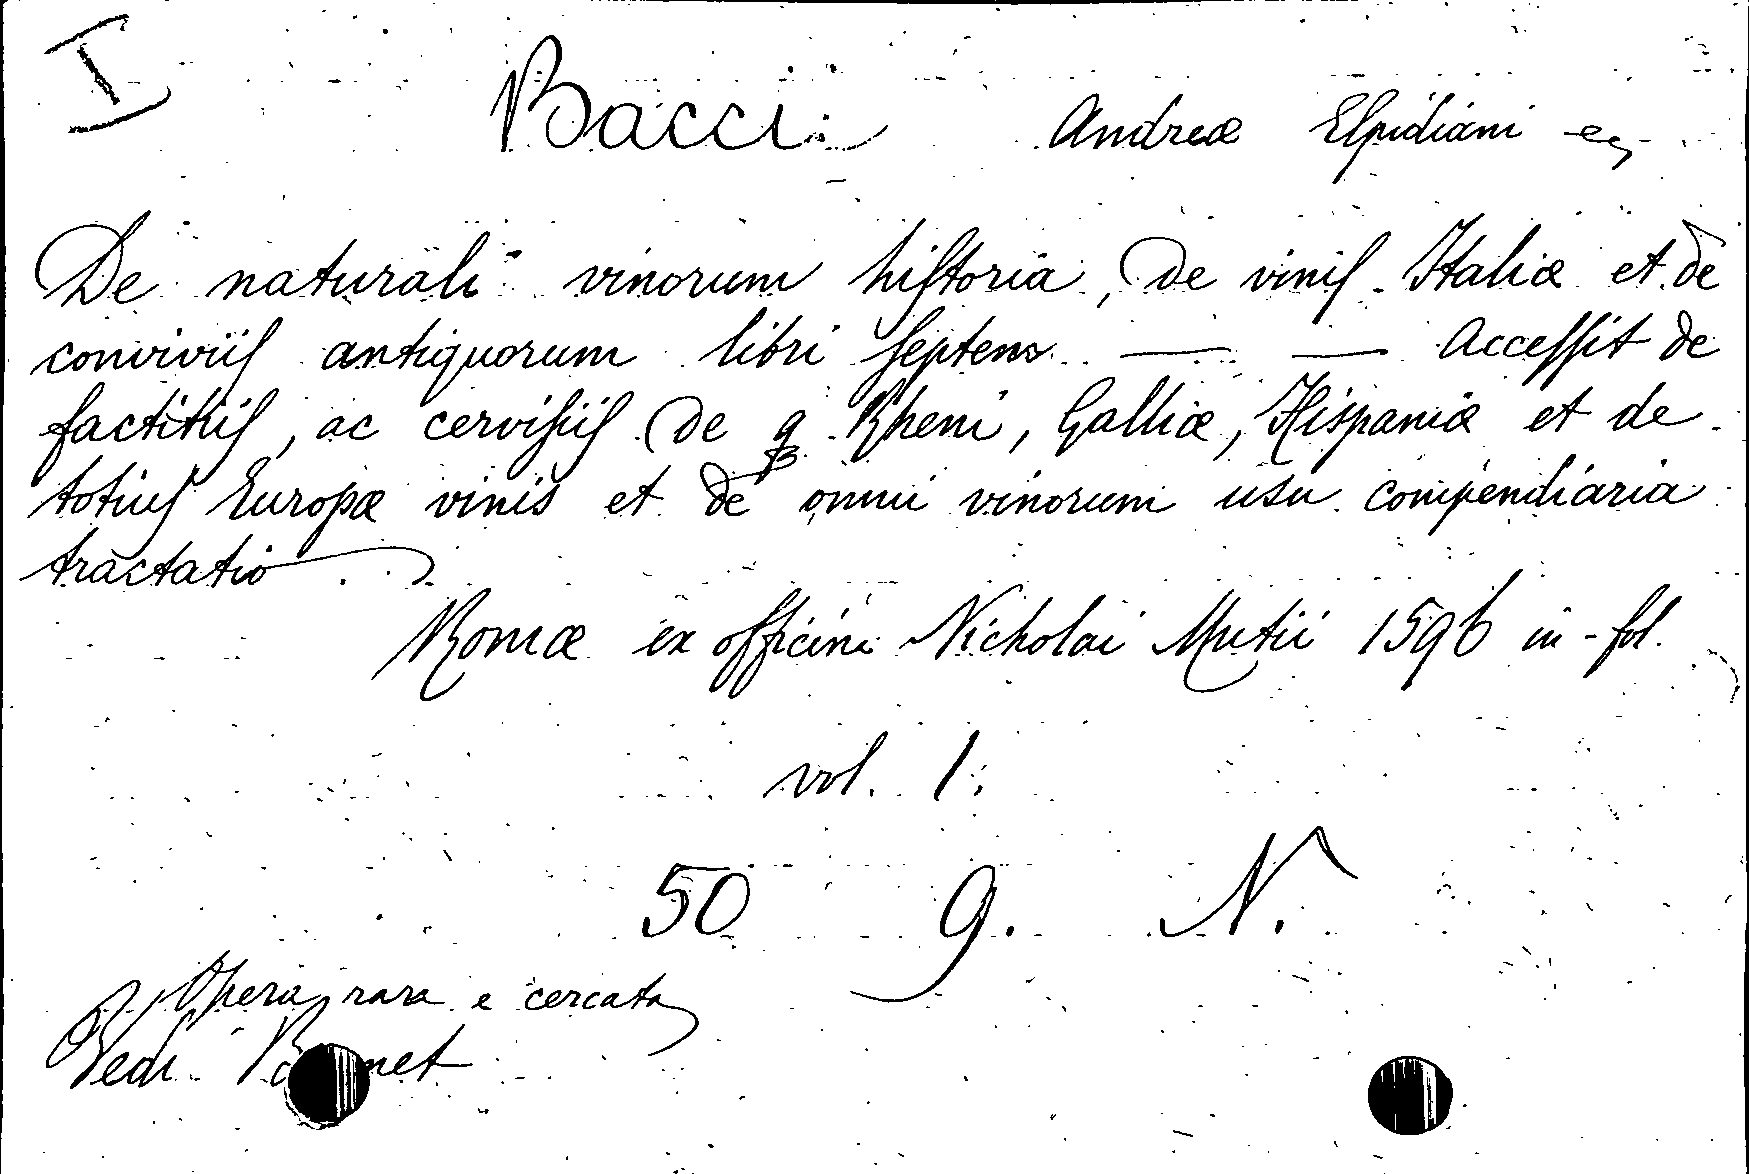 I
Bacci Andreæ Elpidiani
De naturali vinorum hiſtoria, de viniſ Italiæ et de
conviviiſ antiquorum libri ſeptem — — Acceſſit de
factitiiſ, ac cerviſiiſ de q Rheni, Galliæ, Hispaniæ et de
totiuſ Europæ vinis et de omni vinorum usu compendiaria
tractatio
Romæ ex officina Nicholai Mutii 1596 in-fol.
vol. 1.
50 g. N.
Opera rara e cercata
Vedi